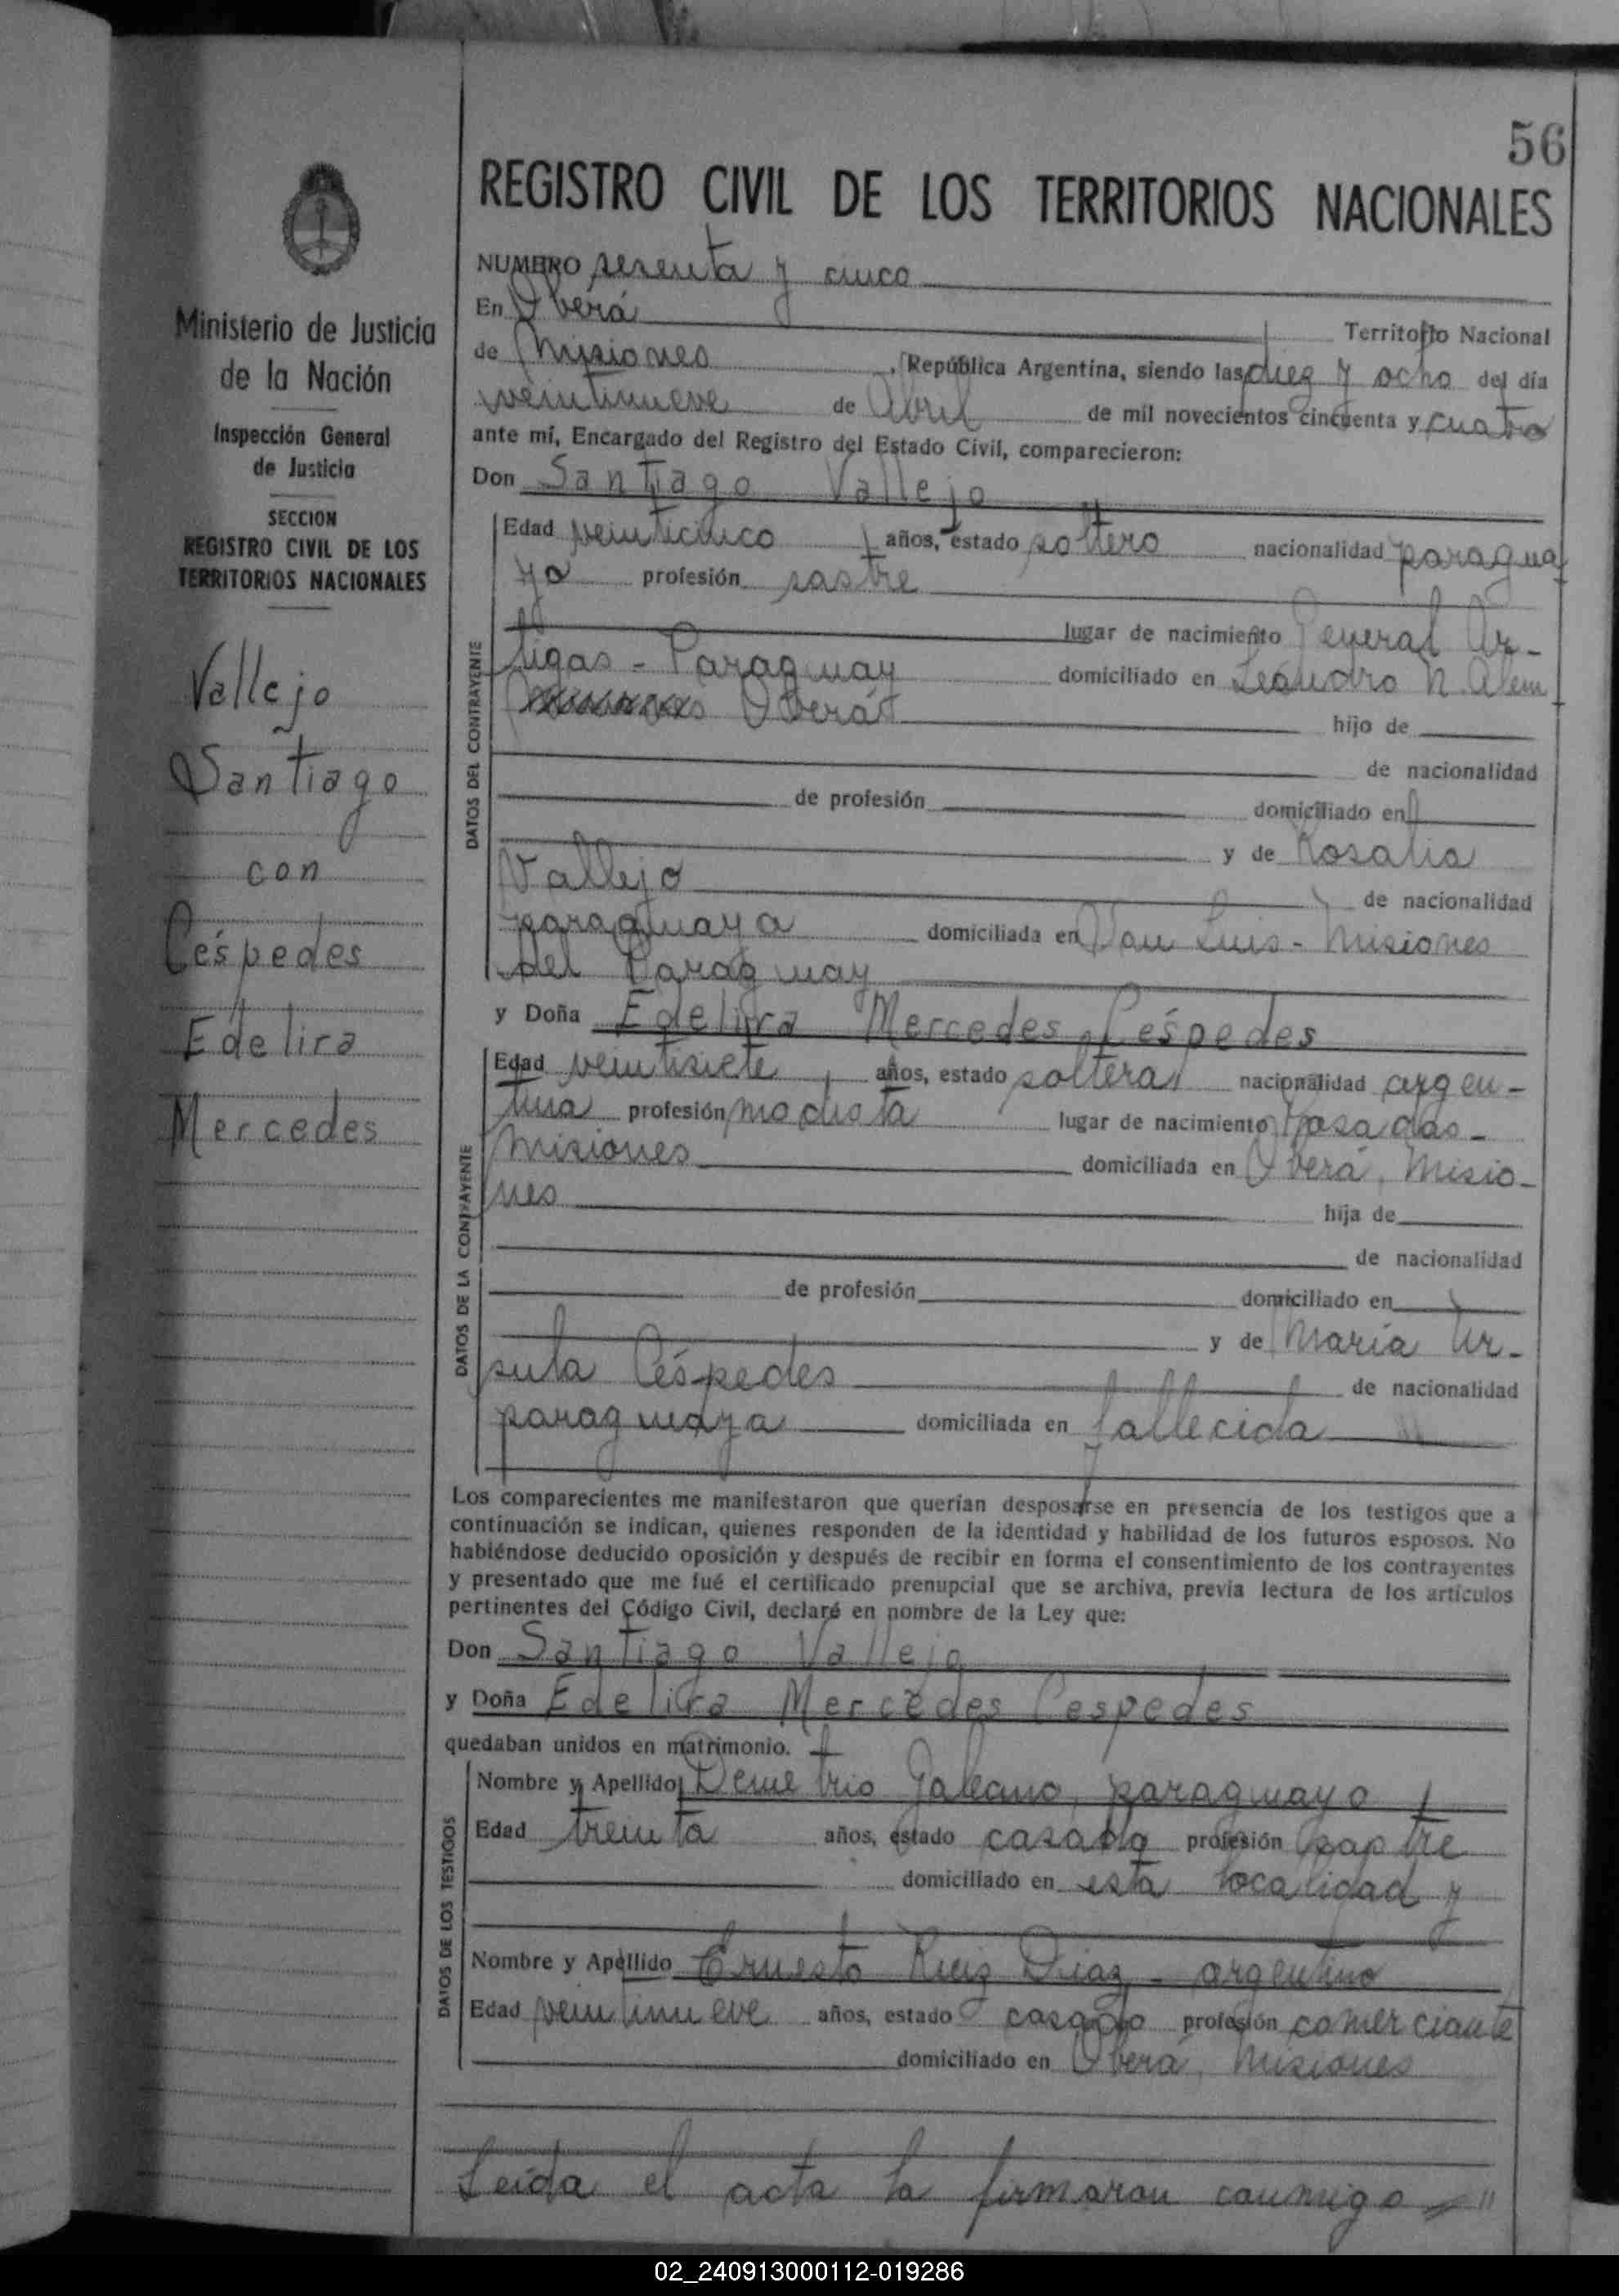 56
REGISTRO CIVIL DE LOS TERRITORIOS NACIONALES
Ministerio de Justicia
de la Nación
Inspección General
de Justicia
SECCION
REGISTRO CIVIL DE LOS
TERRITORIOS NACIONALES
Vallejo
Santiago
con
Céspedes
Edelira
Mercedes
NUMERO sesenta y cinco
En Oberá Territorio Nacional
de Misiones, República Argentina, siendo las diez y ocho del día
veintinueve de Abril de mil novecientos cincuenta y cuatro
ante mí, Encargado del Registro del Estado Civil, comparecieron:
Don Santiago Vallejo
DATOS DEL CONTRAYENTE
Edad veinticinco años, estado soltero nacionalidad paragua
yo profesión sastre
lugar de nacimiento General Ar-
tigas - Paraguay domiciliado en Leandro N. Alem
Oberá hijo de
de nacionalidad
de profesión domiciliado en
y de Rosalia
Vallejo de nacionalidad
paraguaya domiciliada en San Luis - Misiones
del Paraguay
y Doña Edelira Mercedes Céspedes
DATOS DE LA CONTRAYENTE
Edad veintisiete años, estado soltera nacionalidad argen-
tina profesión modista lugar de nacimiento Posadas -
Misiones domiciliada en Oberá, Misio-
nes hija de
de nacionalidad
de profesión domiciliado en
y de María Ur-
sula Céspedes de nacionalidad
paraguaya domiciliada en fallecida
Los comparecientes me manifestaron que querían desposarse en presencia de los testigos que a
continuación se indican, quienes responden de la identidad y habilidad de los futuros esposos. No
habiéndose deducido oposición y después de recibir en forma el consentimiento de los contrayentes
y presentado que me fué el certificado prenupcial que se archiva, previa lectura de los artículos
pertinentes del Código Civil, declaré en nombre de la Ley que:
Don Santiago Vallejo
y Doña Edelira Mercedes Cespedes
quedaban unidos en matrimonio.
DATOS DE LOS TESTIGOS
Nombre y Apellido Demetrio Galeano, paraguayo
Edad treinta años, estado casado profesión sastre
domiciliado en esta localidad y
Nombre y Apellido Ernesto Ruiz Diaz - argentino
Edad veintinueve años, estado casado profesión comerciante
domiciliado en Oberá, Misiones
Leida el acta la firmaron conmigo
02_240913000112-019286